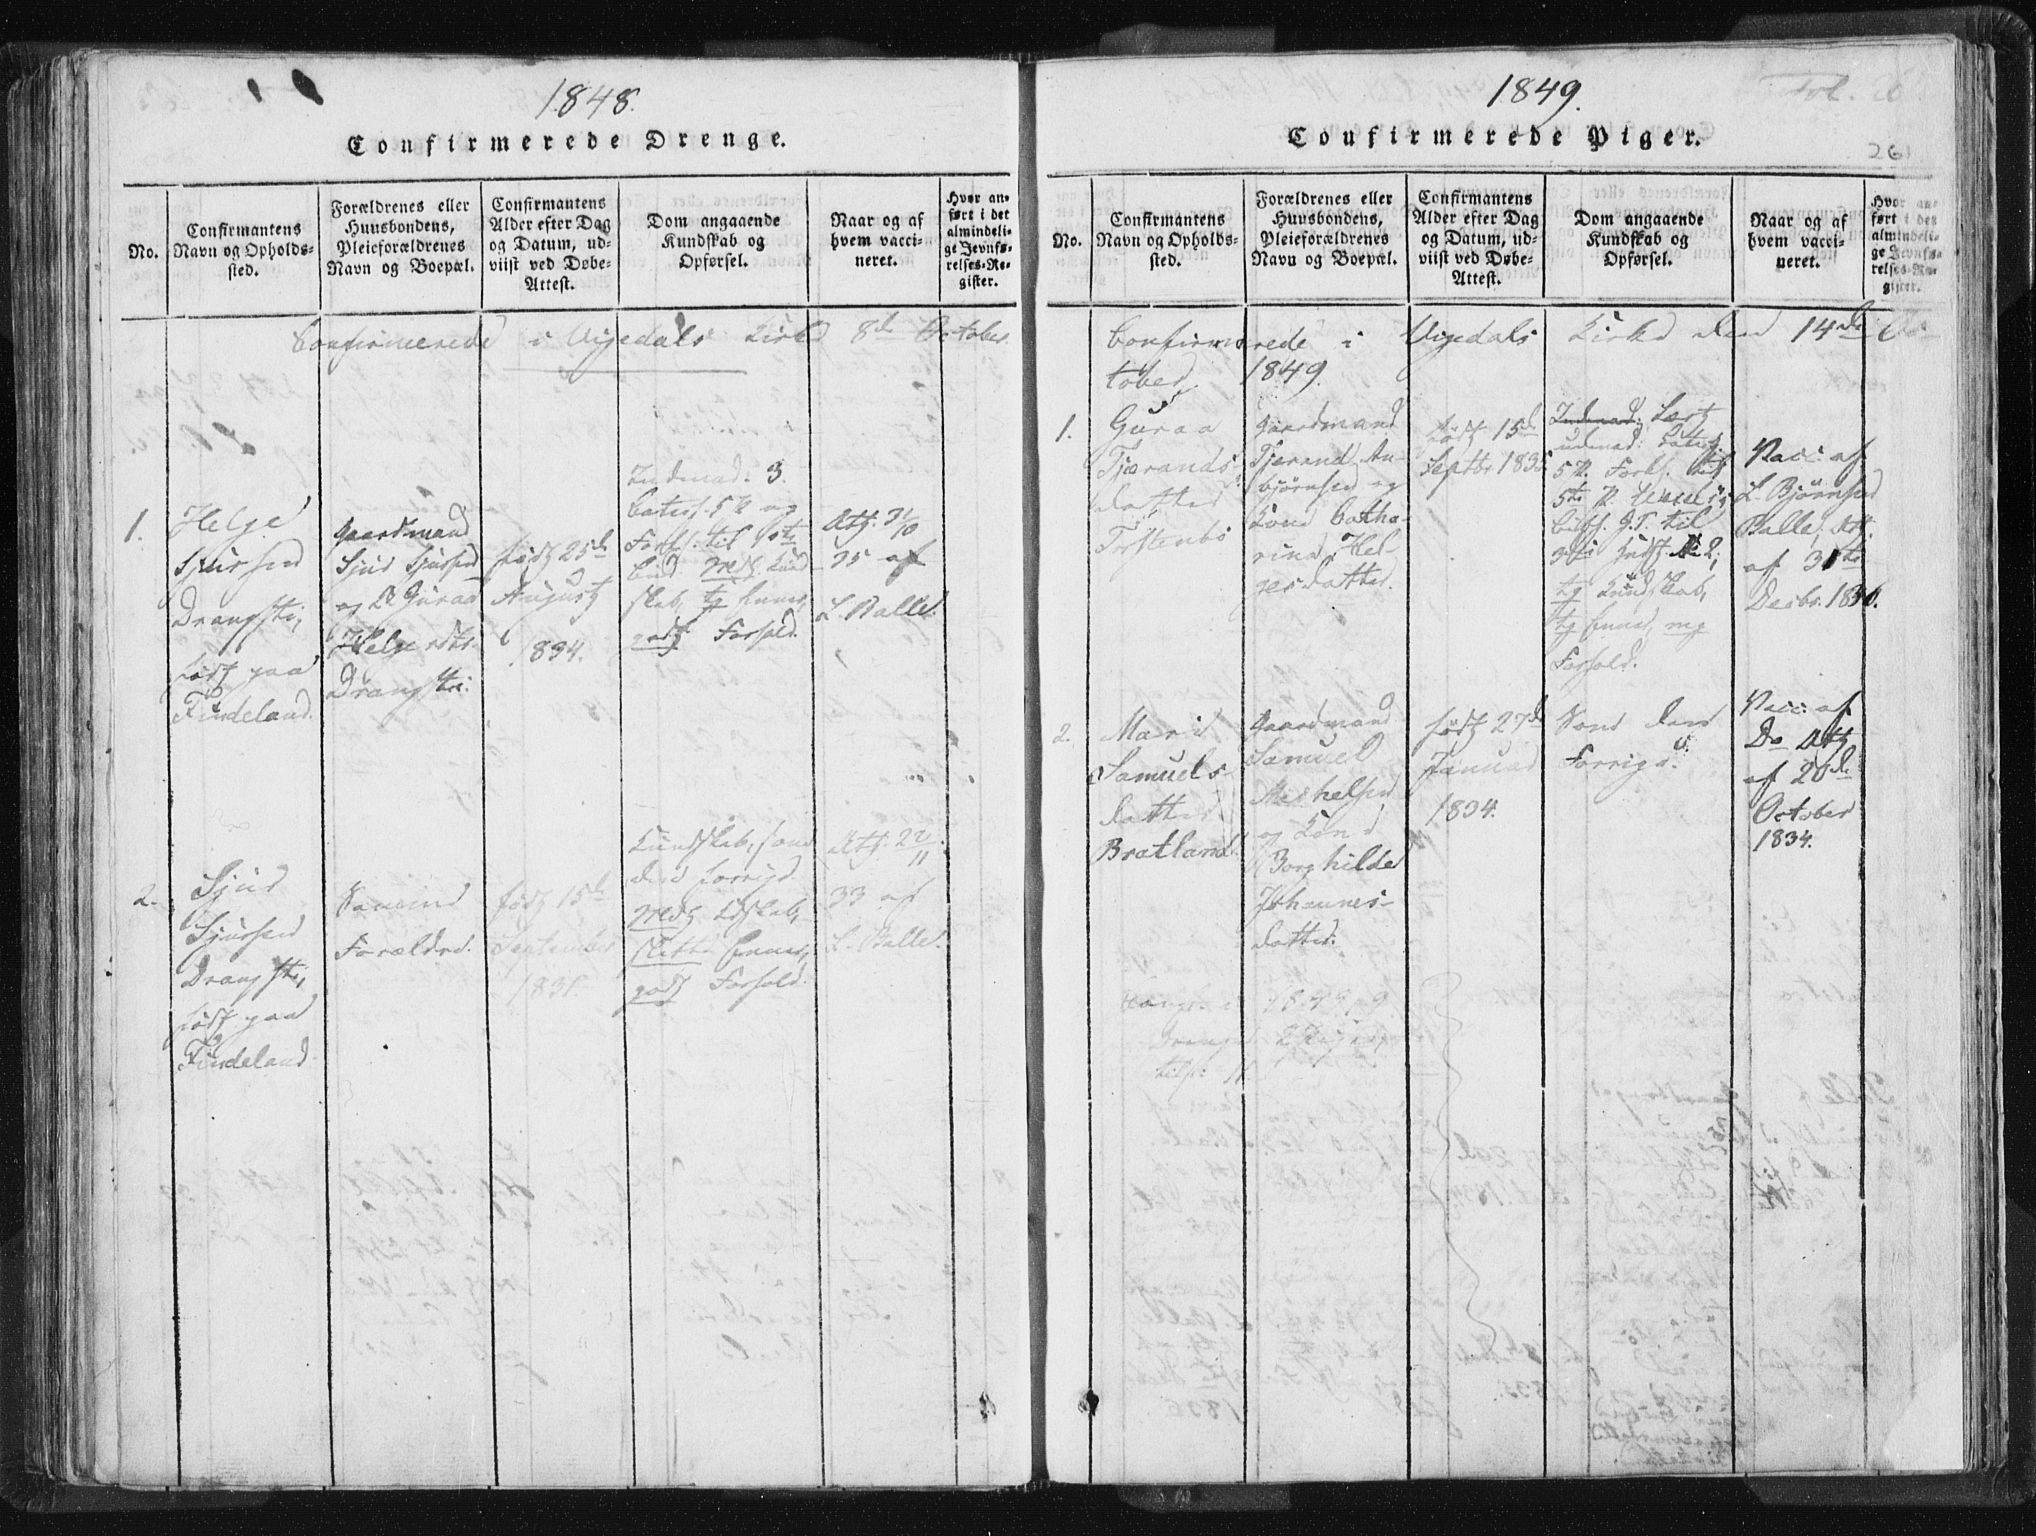 1848.
Confirmerede Drenge.
No.
Confirmantens
Navn og Opholds-
sted.
Forældrenes eller
Huusbondens,
Pleieforældrenes
Navn og Boepæl.
Confirmantens
Alder efter Dag
og Datum, ud-
viist ved Døbe-
Attest.
Dom angaaende
Kundskab og
Opførsel.
Naar og af
hvem vacci-
neret.
Hvor an-
ført i det
almindeli-
ge Jevnfø-
relses-Re-
gister.
Confirmerede i Vigedals Kirke 8de October
1.
Helge
Sjursen
Drangsti,
født paa
Findeland.
Gaardmand
Sjur Sjursen
og K Guraa
Helgesdtr.
Drangsti.
født 25de
August
1834.
Indenad: 3.
og
Forkl. til
Kund-
skab, tg
godt Forhold.
Att. 31/10
35 af
L. Balle.
2.
Sjur
Sjursen
Drangsti,
født paa
Findeland
Samme
Forældre.
født 15de
September
1831.
Kundskab, som
den forrige
Kdskab,
slette
godt Forhold.
Att. 22/11
33 af
L. Balle.
1849.
Fol.
261
Confirmerede Piger.
No.
Confirmantens
Navn og Opholds-
sted.
Forældrenes eller
Huusbondens,
Pleieforældrenes
Navn og Boepæl.
Confirmantens
Alder efter Dag
og Datum, ud-
viist ved Døbe-
Attest.
Dom angaaende
Kundskab og
Opførsel.
Naar og af
hvem vacci-
neret.
Hvor an-
ført i det
almindeli-
ge Jevnfø-
relses-Re-
gister.
Confirmerede i Vigedals Kirke den 14de Oc-
tober 1849.
1.
Guraa
Tjærands-
datter
Torstenbø
Gaardmand
Tjerand An-
bjørnsen og
Kone Catha-
rine Hel-
gesdatter.
født 15de
Septbr 1835
Indenad:
udenad:
5 P. Forkl. til
til
tg Kundskab,
tg mg
Forhold.
Vacc. af
L. Bjørnsen
Balle, Att.
af 31te
Decbr. 1836.
2.
Mari
Samuels-
datter
Bratland
Gaardmand
Samuel
Michelsen
og Kone
Borghilde
Johannes-
datter.
født 27de
Januar
1834.
Som den
Forrige.
Vacc: af
Do Att.
af 20de
October
1834.
1849 9
Drenge 2 Piger,
tilsn 11.